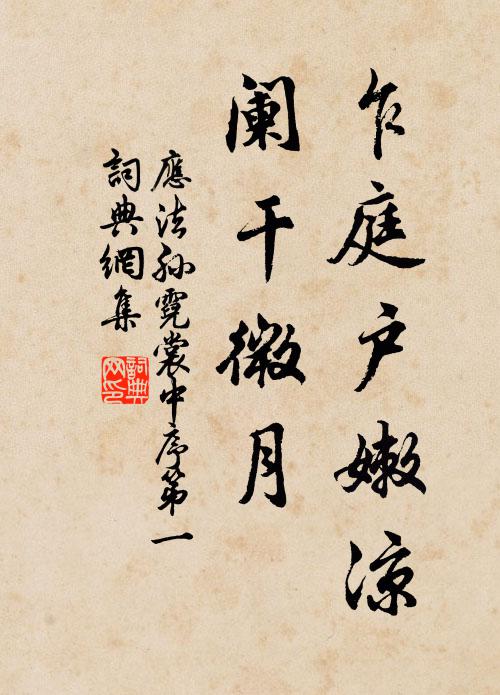 乍庭户嫩凉
阑干微月
應法孫霓裳中序第一
詞典網集
詞典網印